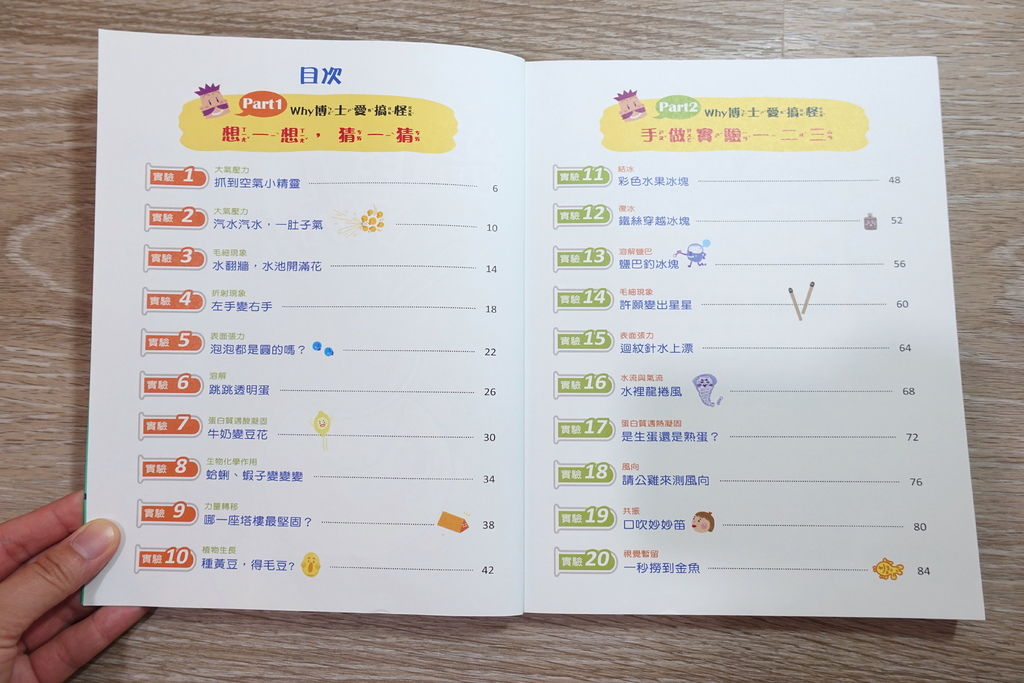 目次
Part1 Why博士愛搞怪
想一想，猜一猜
實驗 1 大氣壓力
抓到空氣小精靈 6
實驗 2 大氣壓力
汽水汽水，一肚子氣 10
實驗 3 毛細現象
水翻牆，水池開滿花 14
實驗 4 折射現象
左手變右手 18
實驗 5 表面張力
泡泡都是圓的嗎？ 22
實驗 6 溶解
跳跳透明蛋 26
實驗 7 蛋白質遇酸凝固
牛奶變豆花 30
實驗 8 生物化學作用
蛤蜊、蝦子變變變 34
實驗 9 力量轉移
哪一座塔樓最堅固？ 38
實驗 10 植物生長
種黃豆，得毛豆? 42
Part2 Why博士愛搞怪
手做實驗一二三
實驗 11 結冰
彩色水果冰塊 48
實驗 12 復冰
鐵絲穿越冰塊 52
實驗 13 溶解鹽巴
鹽巴釣冰塊 56
實驗 14 毛細現象
許願變出星星 60
實驗 15 表面張力
迴紋針水上漂 64
實驗 16 水流與氣流
水裡龍捲風 68
實驗 17 蛋白質遇熱凝固
是生蛋還是熟蛋？ 72
實驗 18 風向
請公雞來測風向 76
實驗 19 共振
口吹妙妙笛 80
實驗 20 視覺暫留
一秒撈到金魚 84